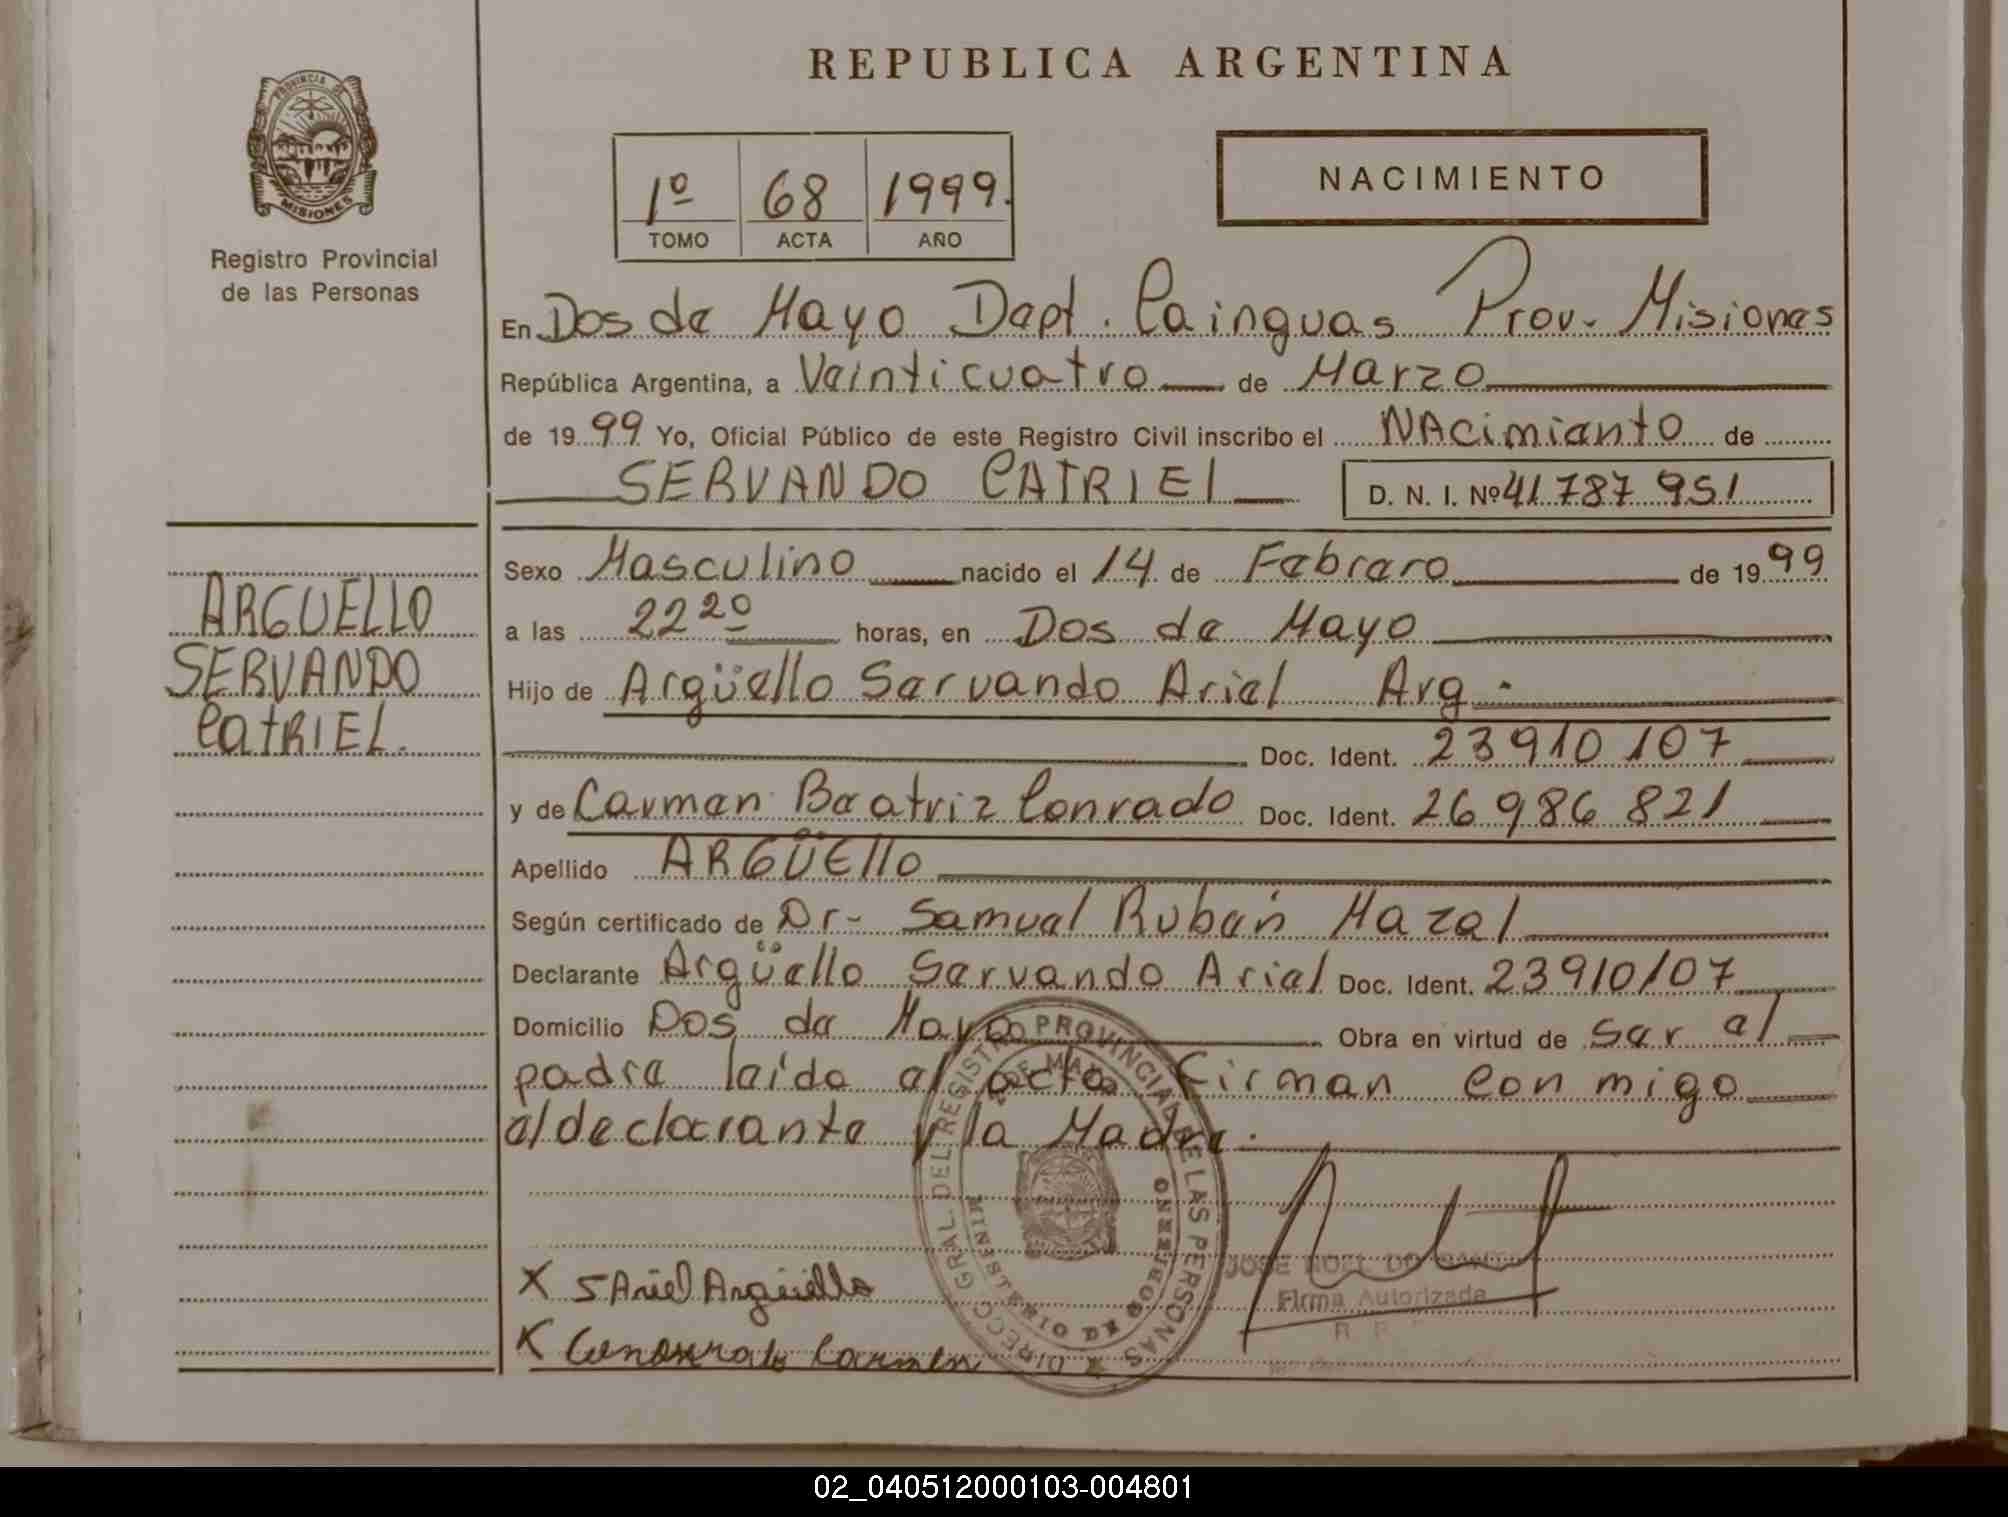 REPUBLICA ARGENTINA
PROVINCIA DE
MISIONES
Registro Provincial
de las Personas
1º 68 1999.
TOMO ACTA AÑO
NACIMIENTO
En Dos de Mayo Dept. Cainguas Prov. Misiones
República Argentina, a Veinticuatro de Marzo
de 1999 Yo, Oficial Público de este Registro Civil inscribo el NAcimiento de
SERVANDO CATRIEl D. N. I. Nº 41 787 951
Sexo Masculino nacido el 14 de Febrero de 1999
a las 22 20 horas, en Dos de Mayo
Hijo de Argüello Servando Ariel Arg.
Doc. Ident. 23910107
y de Carmen Beatriz Conrado Doc. Ident. 26986821
Apellido ARGÜEllo
Según certificado de Dr- Samuel Rubén Mazal
Declarante Argüello Servando Ariel Doc. Ident. 23910107
Domicilio Dos de Mayo Obra en virtud de ser el
padre leído el acta firman conmigo
el declarante y la Madre.
ARGUELLO
SERVANDO
CatRIEL.
DIRECC. GRAL. DEL REGISTRO PROVINCIAL DE LAS PERSONAS
MINISTERIO DE GOBIERNO
DE MAYO
X S Ariel Argüello
X Carmen
JOSE NOEL
Firma Autorizada
02_040512000103-004801